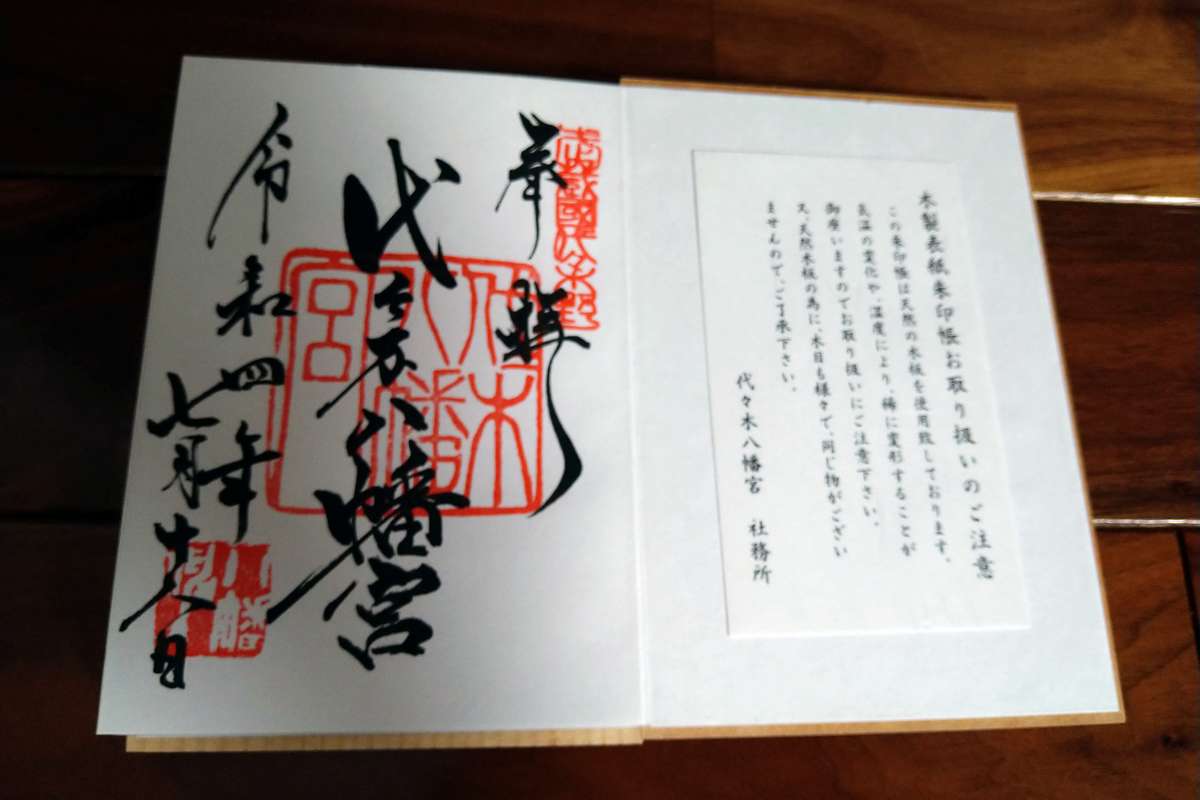 木製表紙朱印帳お取り扱いのご注意
この朱印帳は天然の木板を使用致しております。
気温の変化や、湿度により、稀に変形することが
御座いますのでお取り扱いにご注意下さい。
又、天然木板の為に、木目も様々で、同じ物がござい
ませんので、ご了承下さい。
代々木八幡宮 社務所
奉拝
代々木八幡宮
代々木
八幡
宮
令和四年
七月十八日